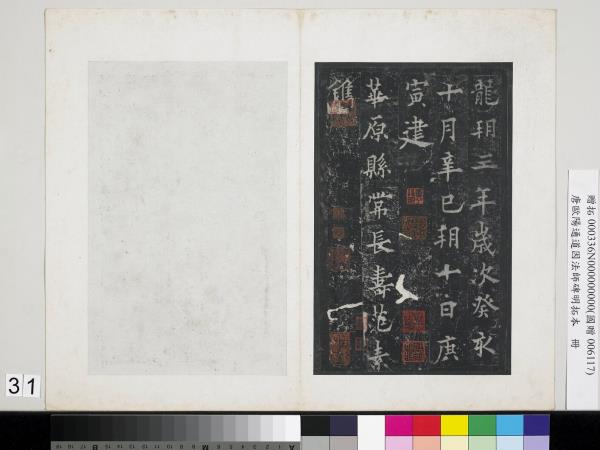 龍朔三年歲次癸亥
十月辛巳朔十日庚
寅建
華原縣常長壽范素
鐫
贈拓 000336N000000000(國贈 006117)
唐歐陽通道因法師碑明拓本 冊
31